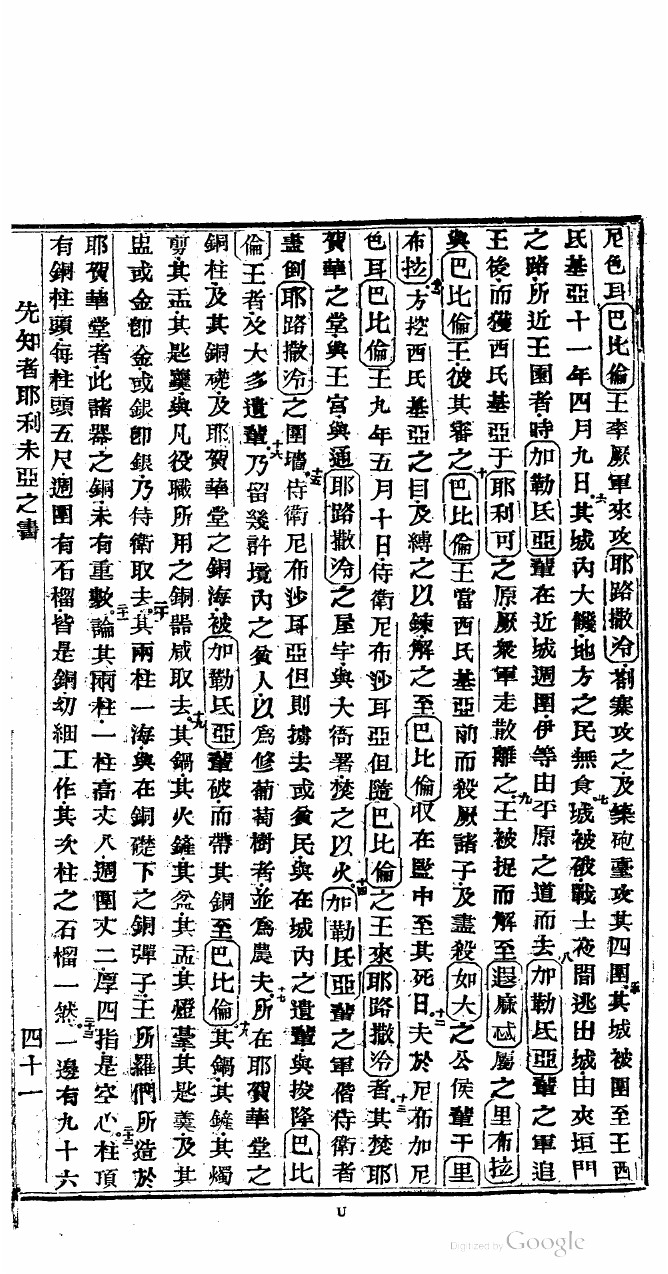 尼色耳巴比倫王率厥軍來攻耶路撒冷劄寨攻之及築砲臺攻其四圍五其城被圍至王西
氏基亞十一年四月九日六其城內大饑地方之民無食七城被破戰士夜間逃出城由夾垣門
之路所近王園者時加勒氐亞輩在近城週圍伊等由平原之道而去八加勒氐亞輩之軍追
王後而獲西氏基亞于耶利可之原厥衆軍走散離之九王被捉而解至遐麻忒屬之里布拉
與巴比倫王彼其審之十巴比倫王當西氏基亞前而殺厥諸子及盡殺如大之公侯輩于里
布拉十一方挖西氏基亞之目及縛之以鍊解之至巴比倫收在監中至其死日十二夫於尼布加尼
色耳巴比倫王九年五月十日侍衛尼布沙耳亞但隨巴比倫之王來耶路撒冷者十三其焚耶
賀華之堂與王宮與通耶路撒冷之屋宇與大衙署焚之以火十四加勒氐亞輩之軍偕侍衛者
盡倒耶路撒冷之圍墻十五侍衛尼布沙耳亞但則擄去或貧民與在城內之遺輩與投降巴比
倫王者及大多遺輩十六乃留幾許境內之貧人以爲修葡萄樹者並爲農夫十七所在耶賀華堂之
銅柱及其銅礎及耶賀華堂之銅海被加勒氐亞輩破而帶其銅至巴比倫十八其鍋其鏟其燭
剪其盂其匙羹與凡役職所用之銅器咸取去十九其鍋其火鏟其盆其盂其燈臺其匙羹及其
盅或金卽金或銀卽銀乃侍衛取去二十其兩柱一海與在銅礎下之銅彈子王所羅們所造於
耶賀華堂者此諸器之銅未有重數二十一論其兩柱一柱高丈八週圍丈二厚四指是空心二十二柱頂
有銅柱頭每柱頭五尺週圍有石榴皆是銅幼細工作其次柱之石榴一然二十三一邊有九十六
先知者耶利未亞之書
四十一
U
Digitized by Google